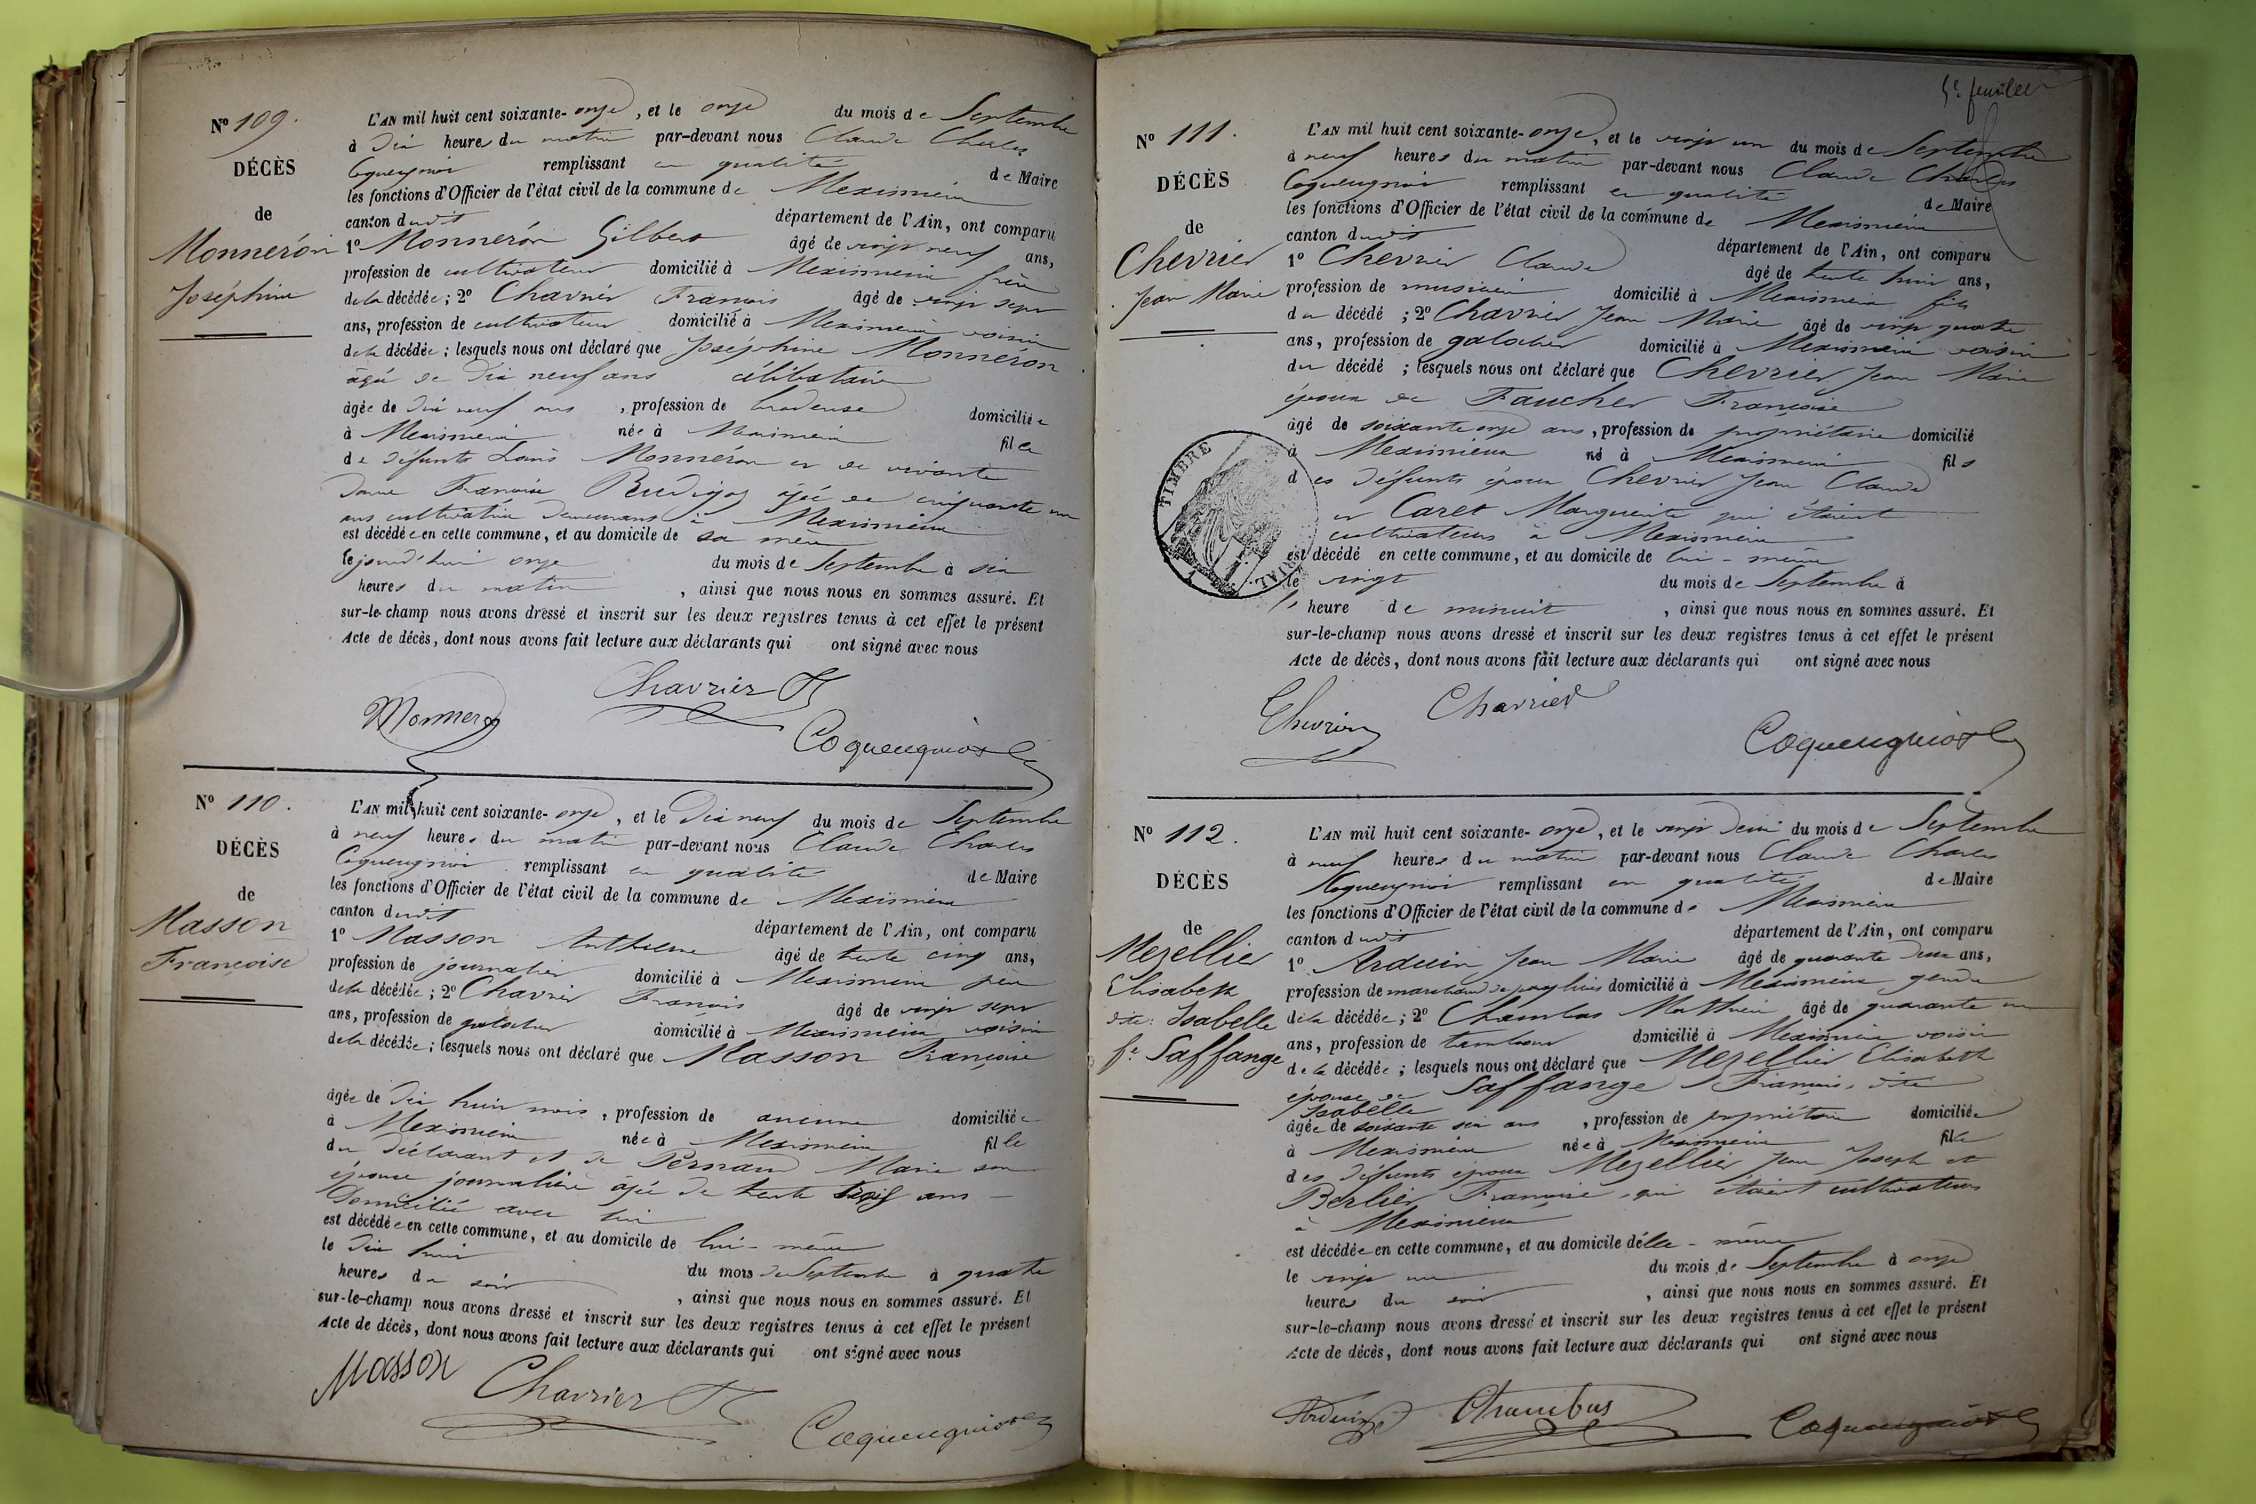 N° 109.
DÉCÈS
de
Monneron
Joséphine
L'AN mil huit cent soixante-onze, et le onze du mois de Septembre
à dix heures du matin par-devant nous Claude Charles
Coqueugniot remplissant en qualité de Maire
les fonctions d'Officier de l'état civil de la commune de Meximieux
canton dudit département de l'Ain, ont comparu
1° Monneron Gilbert âgé de vingt neuf ans,
profession de cultivateur domicilié à Meximieux frère
de la décédée; 2° Chavrier François âgé de vingt sept
ans, profession de cultivateur domicilié à Meximieux voisin
de la décédée; lesquels nous ont déclaré que Joséphine Monneron
âgée de dix neuf ans célibataire
âgée de dix neuf ans, profession de brodeuse domiciliée
à Meximieux née à Meximieux fille
de défunt Louis Monneron et de vivante
Dame Françoise âgée de cinquante un
ans cultivatrice demeurant à Meximieux
est décédée en cette commune, et au domicile de sa mère
le jourd'hui onze du mois de Septembre à six
heures du matin, ainsi que nous nous en sommes assuré. Et
sur-le-champ nous avons dressé et inscrit sur les deux registres tenus à cet effet le présent
Acte de décès, dont nous avons fait lecture aux déclarants qui ont signé avec nous
Monneron Chavrier
Coqueugniot
N° 110.
DÉCÈS
de
Masson
Françoise
L'AN mil huit cent soixante-onze, et le dix neuf du mois de Septembre
à neuf heures du matin par-devant nous Claude Charles
Coqueugniot remplissant en qualité de Maire
les fonctions d'Officier de l'état civil de la commune de Meximieux
canton dudit département de l'Ain, ont comparu
1° Masson Anthelme âgé de trente cinq ans,
profession de journalier domicilié à Meximieux père
de la décédée; 2° Chavrier François âgé de vingt sept
ans, profession de galochier domicilié à Meximieux voisin
de la décédée; lesquels nous ont déclaré que Masson Françoise
âgée de dix huit mois, profession de aucune domiciliée
à Meximieux née à Meximieux fille
du déclarant et de Pernaud Marie son
épouse journalière âgée de trente ans
domiciliée avec lui
est décédée en cette commune, et au domicile de lui-même
le dix huit du mois de Septembre à quatre
heures du soir, ainsi que nous nous en sommes assuré. Et
sur-le-champ nous avons dressé et inscrit sur les deux registres tenus à cet effet le présent
Acte de décès, dont nous avons fait lecture aux déclarants qui ont signé avec nous
Masson Chavrier
Coqueugniot
5e feuillet
N° 111.
DÉCÈS
de
Chevrier
Jean Marie
L'AN mil huit cent soixante-onze, et le vingt un du mois de Septembre
à neuf heures du matin par-devant nous Claude Charles
Coqueugniot remplissant en qualité de Maire
les fonctions d'Officier de l'état civil de la commune de Meximieux
canton dudit département de l'Ain, ont comparu
1° Chevrier Claude âgé de trente huit ans,
profession de musicien domicilié à Meximieux fils
du décédé; 2° Chavrier Jean Marie âgé de vingt quatre
ans, profession de galochier domicilié à Meximieux voisin
du décédé; lesquels nous ont déclaré que Chevrier Jean Marie
époux de Faucher Françoise
âgé de soixante onze ans, profession de propriétaire domicilié
à Meximieux né à Meximieux fils
des défunts époux Chevrier Jean Claude
et Caret Marguerite qui étaient
cultivateurs à Meximieux
est décédé en cette commune, et au domicile de lui-même
le vingt du mois de Septembre à
l'heure de minuit, ainsi que nous nous en sommes assuré. Et
sur-le-champ nous avons dressé et inscrit sur les deux registres tenus à cet effet le présent
Acte de décès, dont nous avons fait lecture aux déclarants qui ont signé avec nous
TIMBRE
Chevrier Chavrier
Coqueugniot
N° 112.
DÉCÈS
de
Mezellier
Elisabeth
dite: Isabelle
fe Saffange
L'AN mil huit cent soixante-onze, et le vingt deux du mois de Septembre
à neuf heures du matin par-devant nous Claude Charles
Coqueugniot remplissant en qualité de Maire
les fonctions d'Officier de l'état civil de la commune de Meximieux
canton dudit département de l'Ain, ont comparu
1° Arduin Jean Marie âgé de quarante deux ans,
profession de marchand de parapluies domicilié à Meximieux gendre
de la décédée; 2° Chambas Mathieu âgé de quarante un
ans, profession de tambour domicilié à Meximieux voisin
de la décédée; lesquels nous ont déclaré que Mezellier Elisabeth
épouse de Saffange François, dite
Isabelle
âgée de soixante six ans, profession de propriétaire domiciliée
à Meximieux née à Meximieux fille
des défunts époux Mezellier Jean Joseph et
Berlier Françoise, qui étaient cultivateurs
à Meximieux
est décédée en cette commune, et au domicile d'elle-même
le vingt un du mois de Septembre à onze
heures du soir, ainsi que nous nous en sommes assuré. Et
sur-le-champ nous avons dressé et inscrit sur les deux registres tenus à cet effet le présent
Acte de décès, dont nous avons fait lecture aux déclarants qui ont signé avec nous
Arduin Chambas Coqueugniot